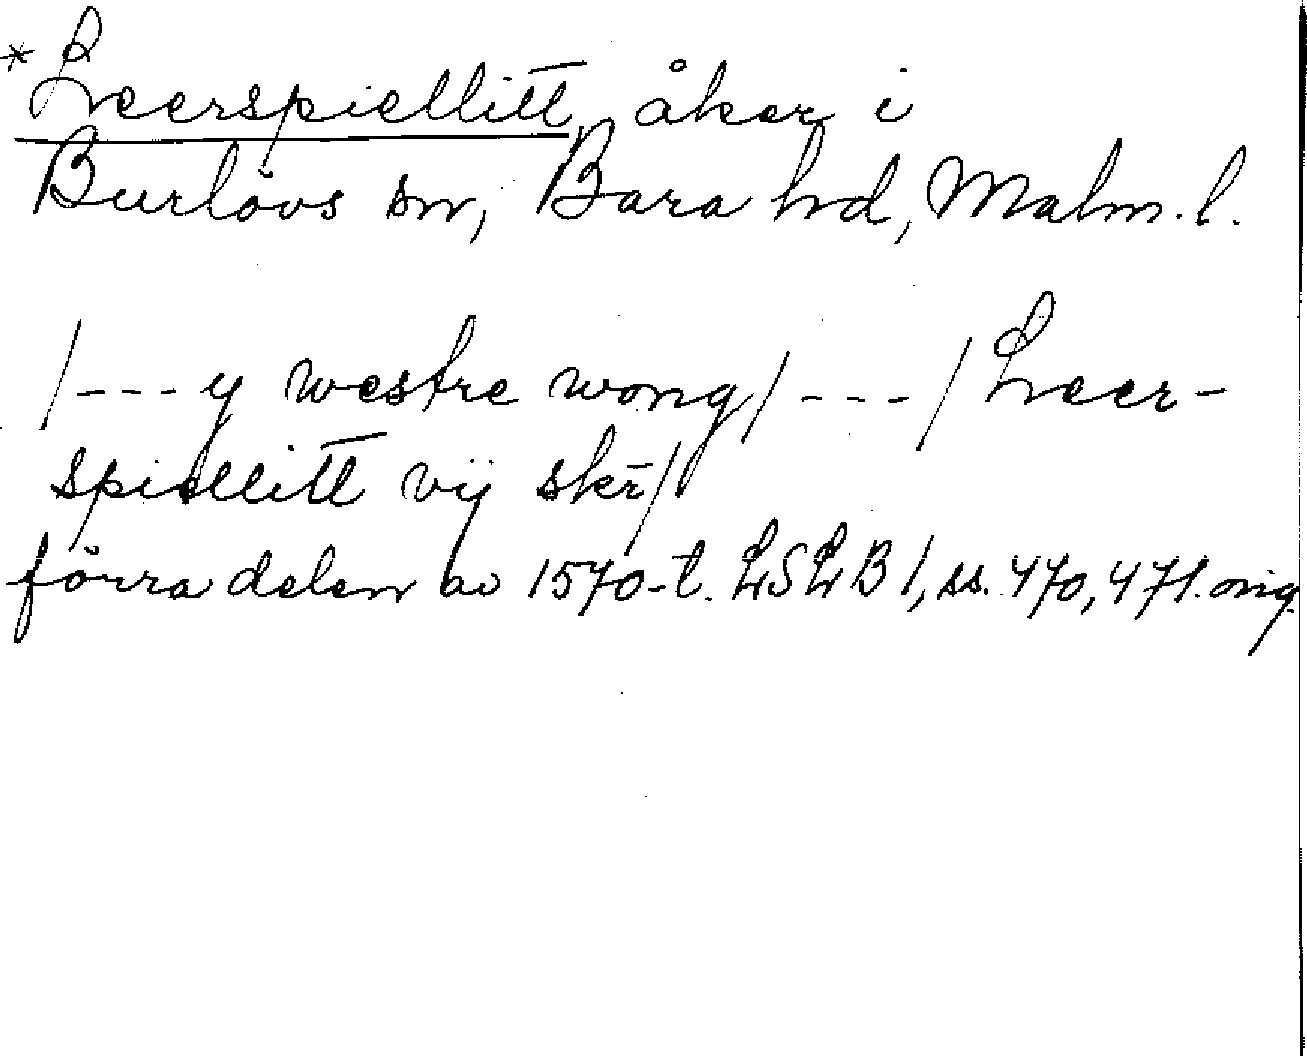 *Leerspiellitt, åker i
Burlövs sn, Bara hd, Malm. l.
/---y westre wong/---/Leer-
spiellitt vij skr̄/
förra delen av 1570-t. LSLB 1, ss. 470, 471. orig.